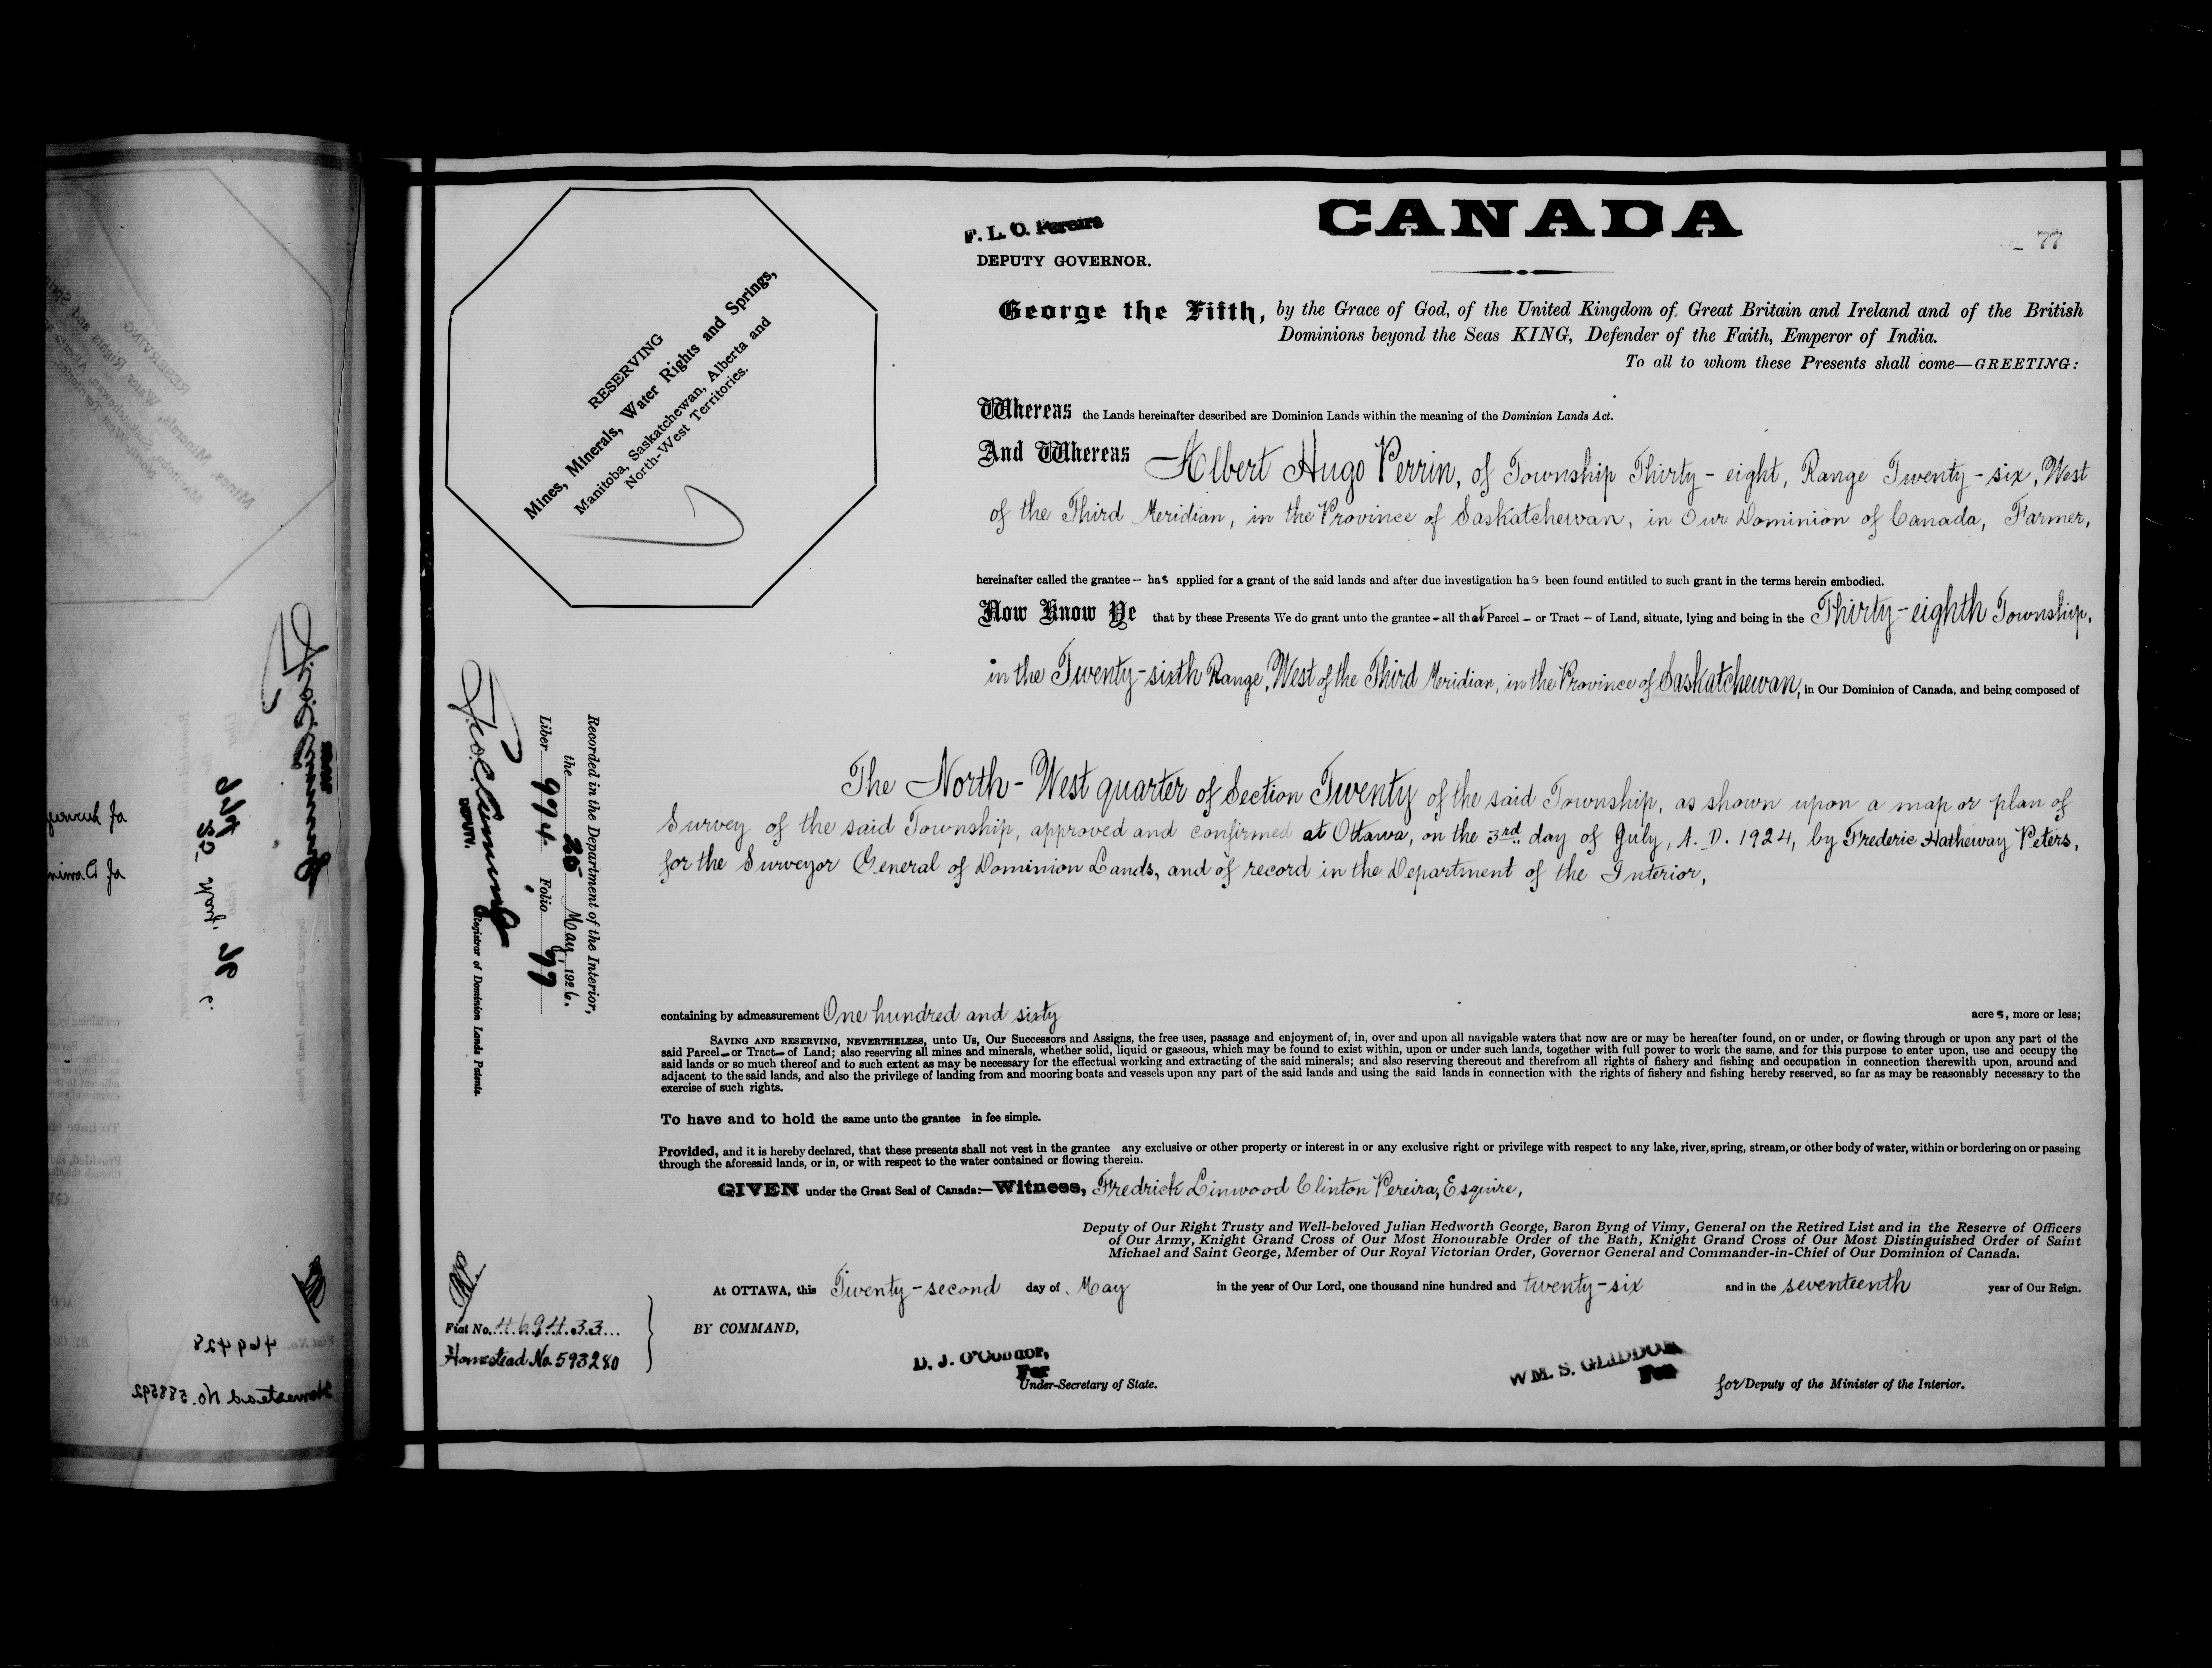 F. L. O. Pereira
DEPUTY GOVERNOR.
CANADA
77
RESERVING
Mines, Minerals, Water Rights and Springs,
Manitoba, Saskatchewan, Alberta and
North-West Territories.
George the Fifth, by the Grace of God, of the United Kingdom of Great Britain and Ireland and of the British
Dominions beyond the Seas KING, Defender of the Faith, Emperor of India.
To all to whom these Presents shall come—GREETING:
Whereas the Lands hereinafter described are Dominion Lands within the meaning of the Dominion Lands Act.
And Whereas Albert Hugo Perrin, of Township Thirty-eight, Range Twenty-six, West
of the Third Meridian, in the Province of Saskatchewan, in Our Dominion of Canada, Farmer,
hereinafter called the grantee — has applied for a grant of the said lands and after due investigation has been found entitled to such grant in the terms herein embodied.
Now Know Ye that by these Presents We do grant unto the grantee — all that Parcel — or Tract — of Land, situate, lying and being in the Thirty-eighth Township,
in the Twenty-sixth Range, West of the Third Meridian, in the Province of Saskatchewan, in Our Dominion of Canada, and being composed of
The North-West quarter of Section Twenty of the said Township, as shown upon a map or plan of
Survey of the said Township, approved and confirmed at Ottawa, on the 3rd. day of July, A. D. 1924, by Frederic Hatheway Peters,
for the Surveyor General of Dominion Lands, and of record in the Department of the Interior,
Recorded in the Department of the Interior,
the 25 May, 1926.
Liber 994 Folio 77
DEPUTY. Registrar of Dominion Lands Patents.
containing by admeasurement One hundred and sixty acres, more or less;
SAVING AND RESERVING, NEVERTHELESS, unto Us, Our Successors and Assigns, the free uses, passage and enjoyment of, in, over and upon all navigable waters that now are or may be hereafter found, on or under, or flowing through or upon any part of the
said Parcel — or Tract — of Land; also reserving all mines and minerals, whether solid, liquid or gaseous, which may be found to exist within, upon or under such lands, together with full power to work the same, and for this purpose to enter upon, use and occupy the
said lands or so much thereof and to such extent as may be necessary for the effectual working and extracting of the said minerals; and also reserving thereout and therefrom all rights of fishery and fishing and occupation in connection therewith upon, around and
adjacent to the said lands, and also the privilege of landing from and mooring boats and vessels upon any part of the said lands and using the said lands in connection with the rights of fishery and fishing hereby reserved, so far as may be reasonably necessary to the
exercise of such rights.
To have and to hold the same unto the grantee in fee simple.
Provided, and it is hereby declared, that these presents shall not vest in the grantee any exclusive or other property or interest in or any exclusive right or privilege with respect to any lake, river, spring, stream, or other body of water, within or bordering on or passing
through the aforesaid lands, or in, or with respect to the water contained or flowing therein.
GIVEN under the Great Seal of Canada:—Witness, Fredrick Linwood Clinton Pereira, Esquire,
Deputy of Our Right Trusty and Well-beloved Julian Hedworth George, Baron Byng of Vimy, General on the Retired List and in the Reserve of Officers
of Our Army, Knight Grand Cross of Our Most Honourable Order of the Bath, Knight Grand Cross of Our Most Distinguished Order of Saint
Michael and Saint George, Member of Our Royal Victorian Order, Governor General and Commander-in-Chief of Our Dominion of Canada.
At OTTAWA, this Twenty-second day of May in the year of Our Lord, one thousand nine hundred and twenty-six and in the seventeenth year of Our Reign.
Fiat No. 469433
Homestead No. 593280
BY COMMAND,
D. J. O'Connor,
For
Under-Secretary of State.
WM. S. GLIDDON
For
for Deputy of the Minister of the Interior.